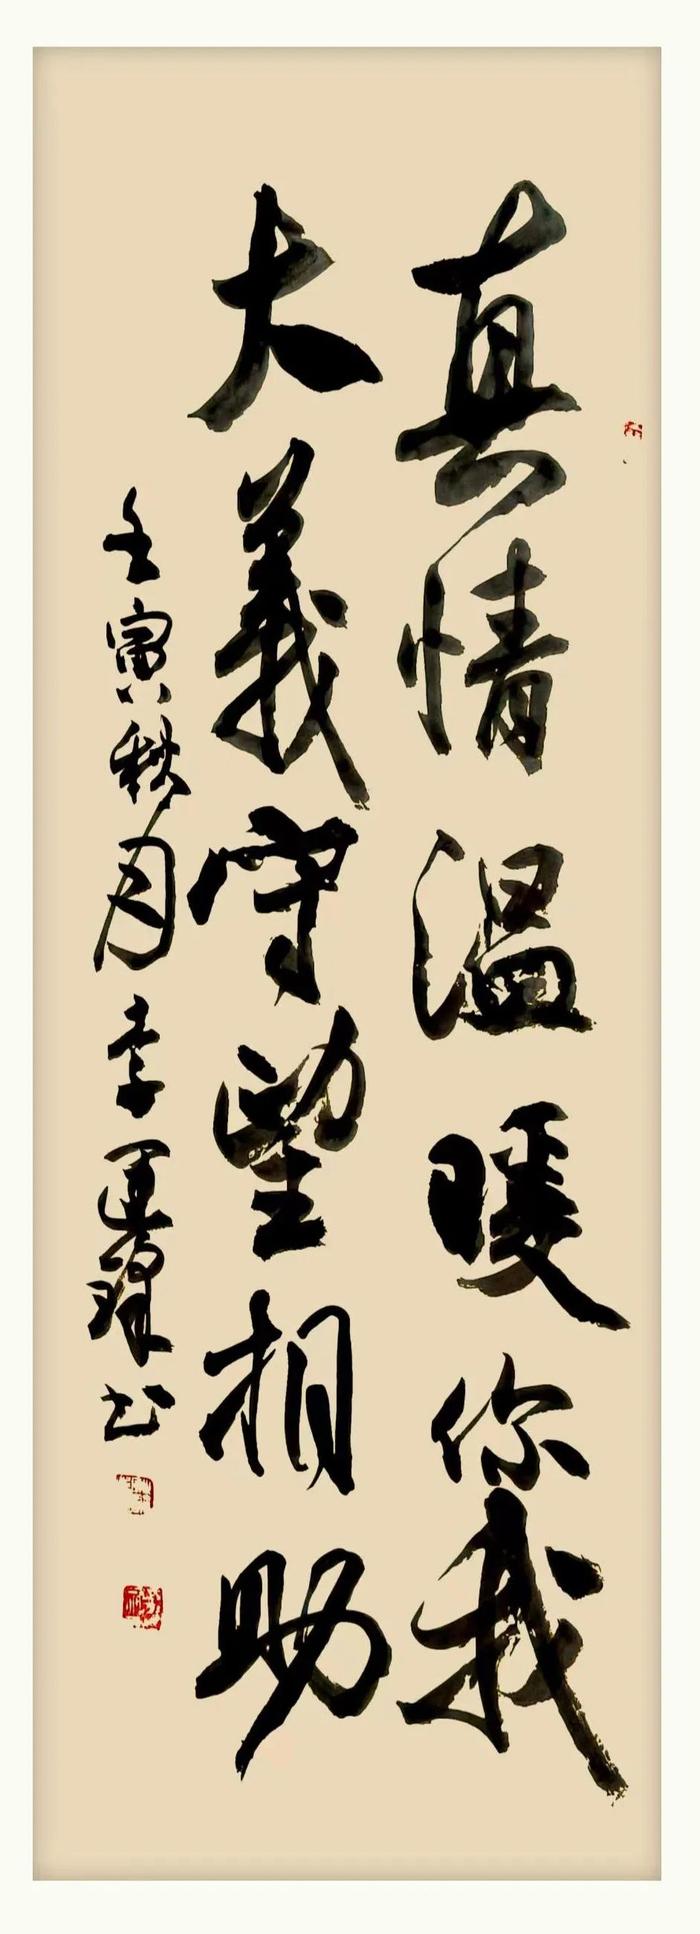 真情温暖你我
大義守望相助
壬寅秋月李運鋒书